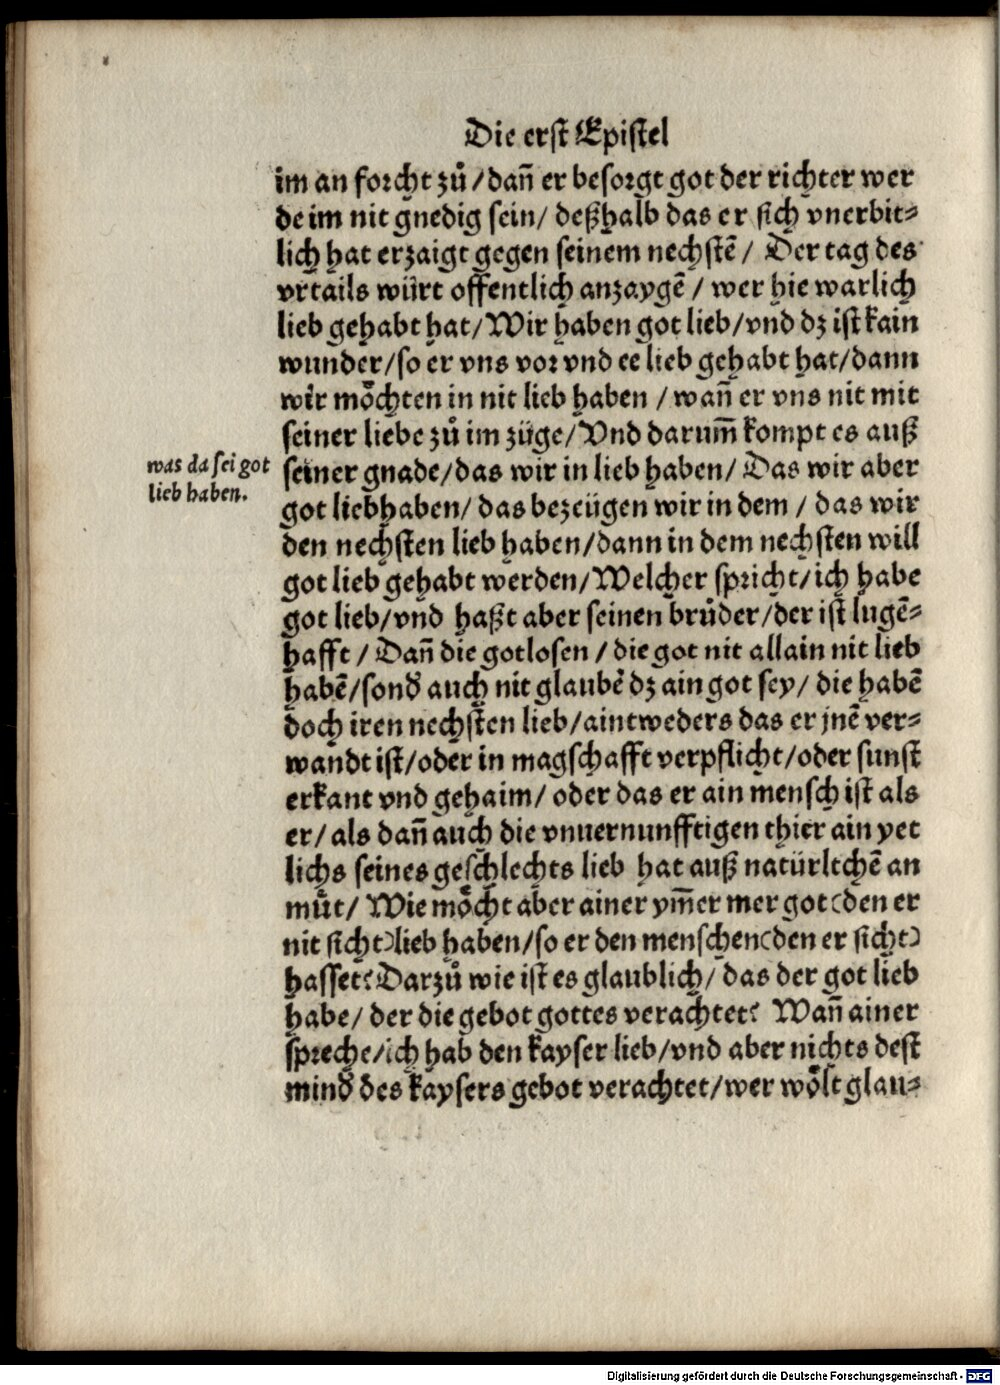 Die erst Epistel
im an forcht zů/dañ er besorgt got der richter wer
de im nit gnedig sein/ deßhalb das er sich vnerbit⸗
lich hat erzaigt gegen seinem nechstē/ Der tag des
vrtails würt offentlich anzaygē/ wer hie warlich
lieb gehabt hat/Wir haben got lieb/vnd dz ist kain
wunder/so er vns vor vnd ee lieb gehabt hat/dann
wir moͤchten in nit lieb haben/wañ er vns nit mit
seiner liebe zů im züge/Vnd darum̃ kompt es auß
was da sei got
lieb haben.
seiner gnade/das wir in lieb haben/ Das wir aber
got liebhaben/ das bezeügen wir in dem/ das wir
den nechsten lieb haben/dann in dem nechsten will
got lieb gehabt werden/Welcher spricht/ich habe
got lieb/vnd haßt aber seinen brůder/der ist lugē⸗
hafft/ Dañ die gotlosen/die got nit allain nit lieb
habē/sond̄ auch nit glaubē dz ain got sey/ die habē
doch iren nechsten lieb/aintweders das er jnē ver⸗
wandt ist/oder in magschafft verpflicht/oder sunst
erkant vnd gehaim/ oder das er ain mensch ist als
er/ als dañ auch die vnuernunfftigen thier ain yet
lichs seines geschlechts lieb hat auß natürltchē an
můt/ Wie moͤcht aber ainer ym̃er mer got(den er
nit sicht)lieb haben/so er den menschen(den er sicht)
hasset?Darzů wie ist es glaublich/das der got lieb
habe/ der die gebot gottes verachtet? Wañ ainer
spreche/ich hab den kayser lieb/vnd aber nichts dest
mind̄ des kaysers gebot verachtet/wer woͤlt glau⸗
Digitalisierung gefördert durch die Deutsche Forschungsgemeinschaft - DFG